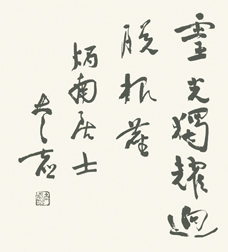 靈光獨耀迥
脱根塵
炳南居士